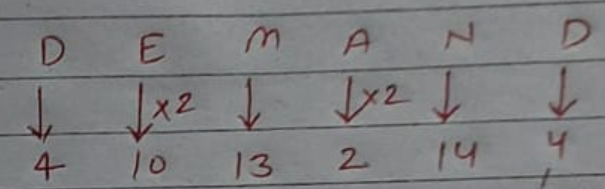 D E M A N D
↓ ↓×2 ↓ ↓×2 ↓ ↓
4 10 13 2 14 4